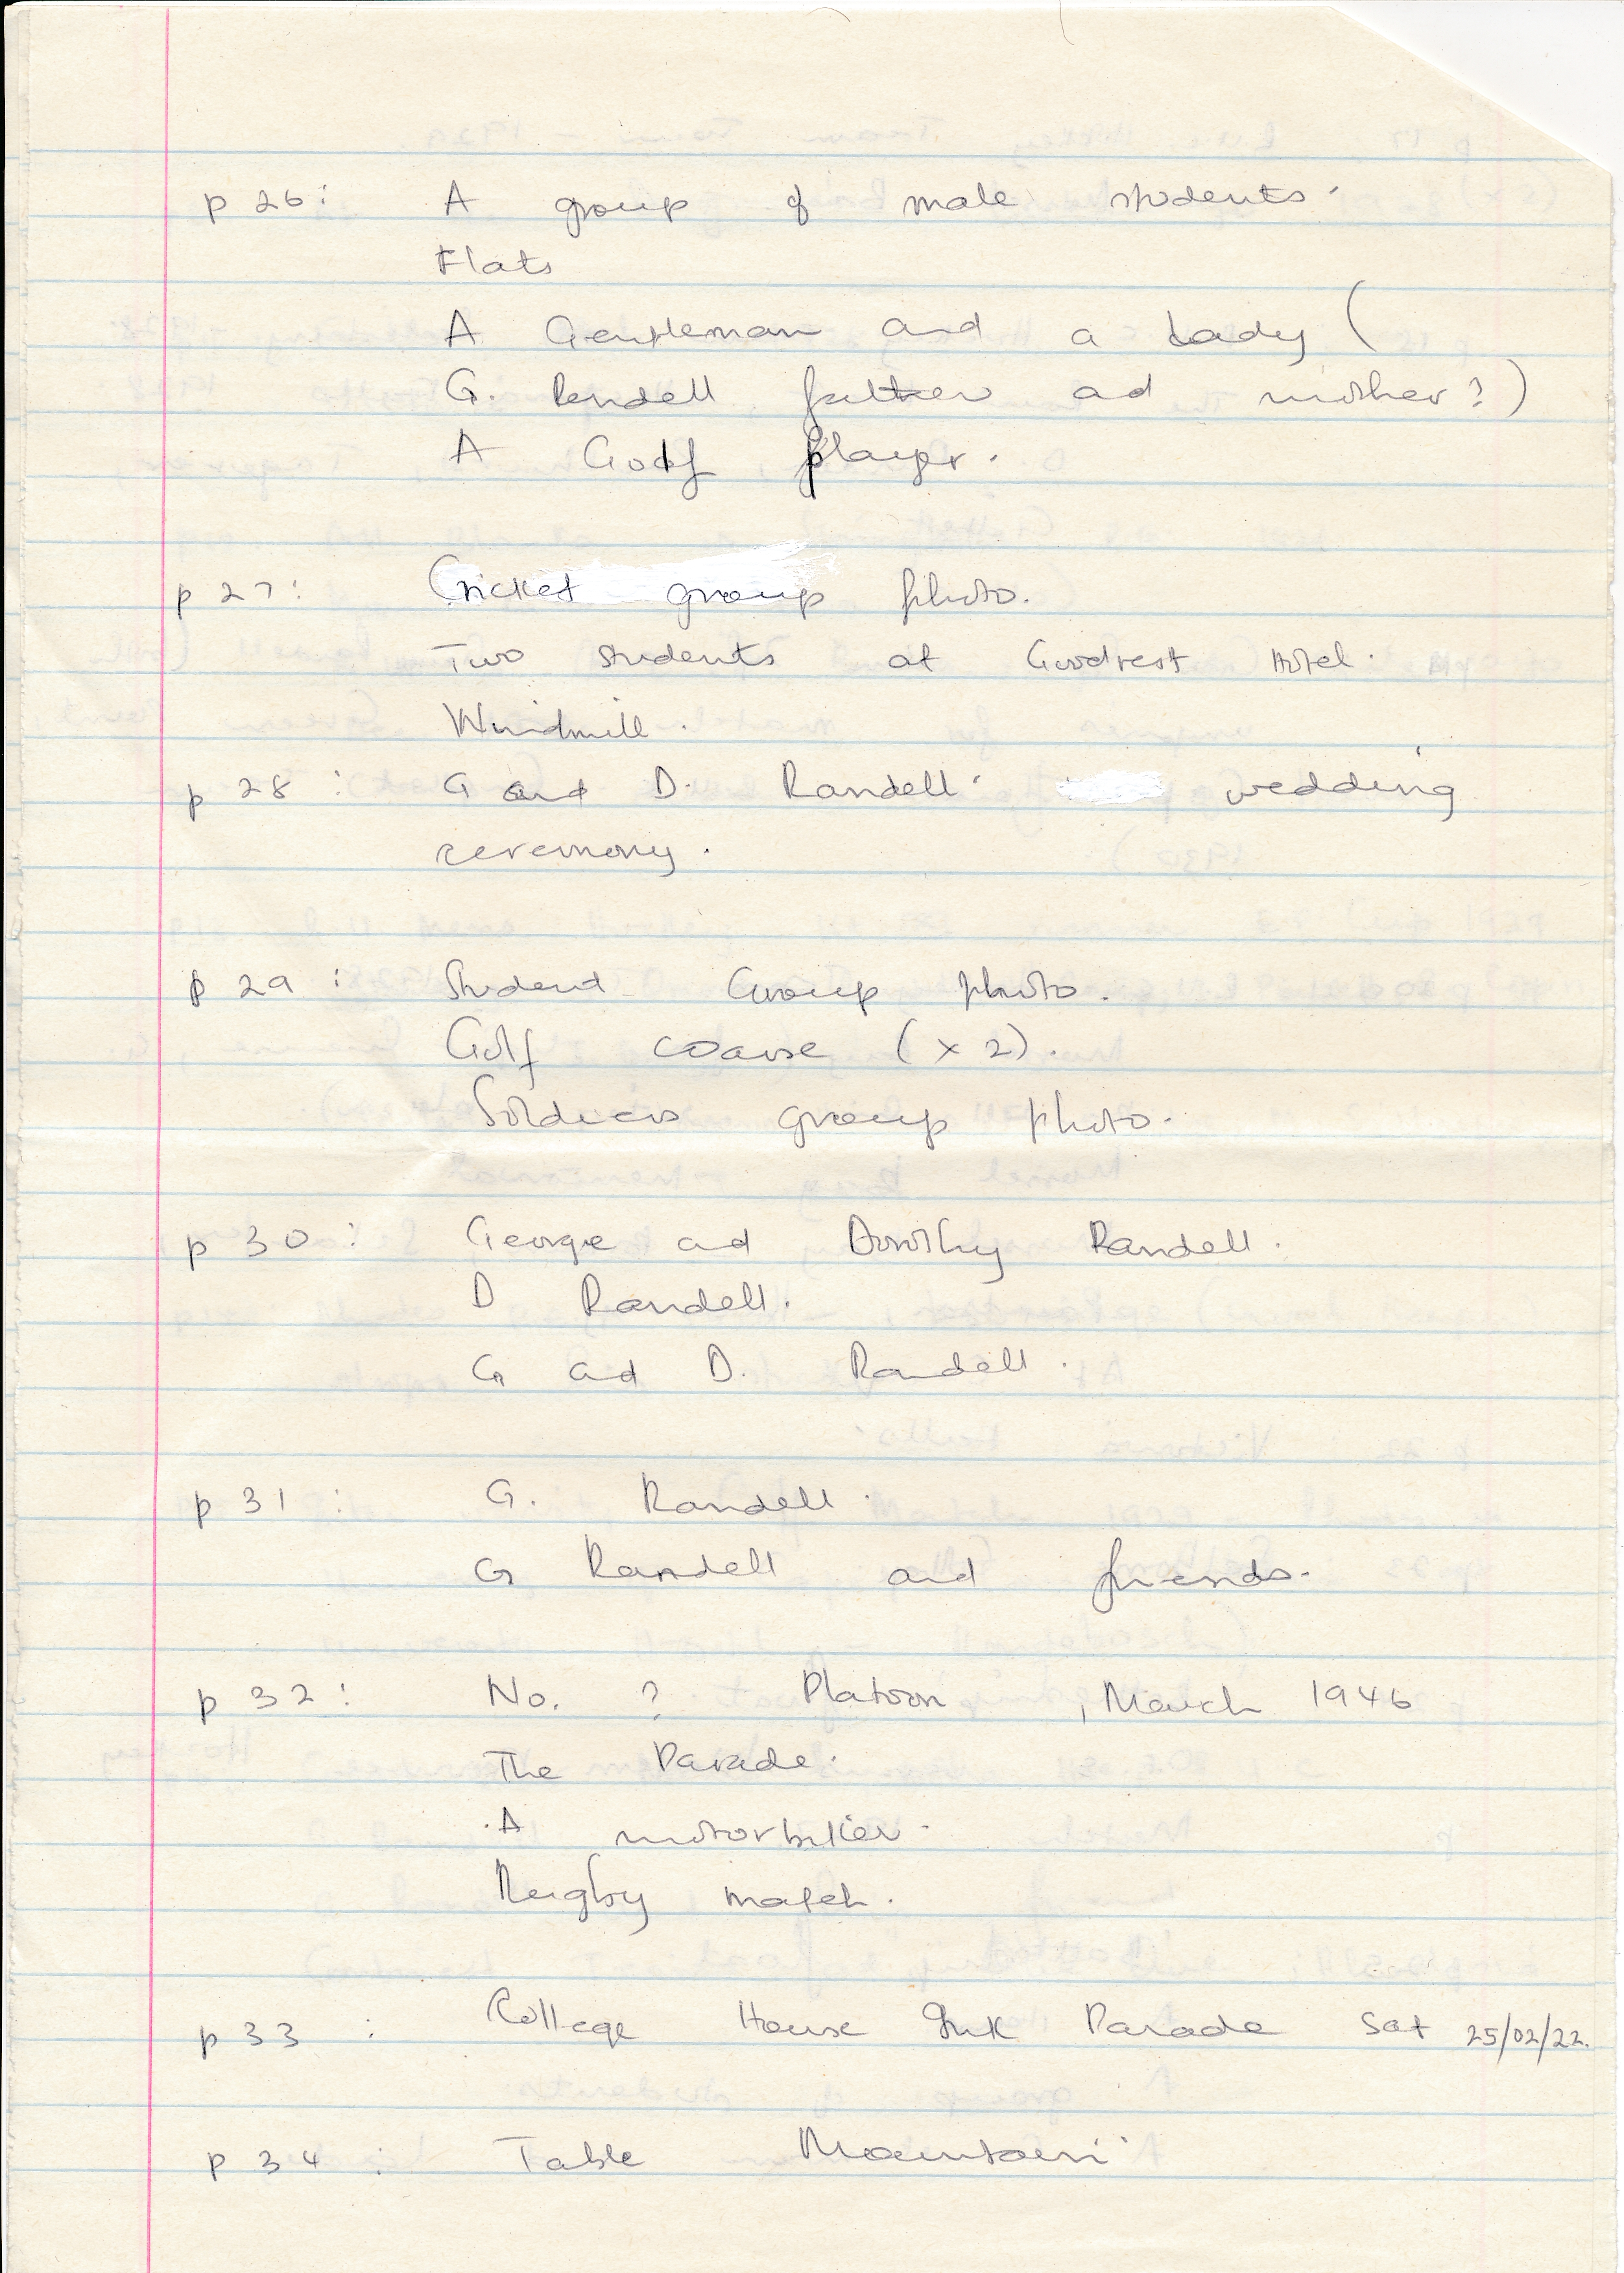 p 26: A group of male students.
Flats
A Gentleman and a Lady (
G. Randell father and mother?)
A Golf player.
p 27: Cricket group photo.
Two students at Goodrest Hotel.
Windmill.
p 28: G and D. Randell' wedding
ceremony.
p 29: Student Group photo.
Golf course (x 2).
Soldiers group photo.
p 30: George and Dorothy Randell.
D Randell.
G and D. Randell.
p 31: G. Randell.
G Randell and friends.
p 32: No. ? Platoon, March 1946
The Parade.
A motorbiker.
Rugby match.
p 33: College House Parade Sat 25/02/22.
p 34: Table Mountain.